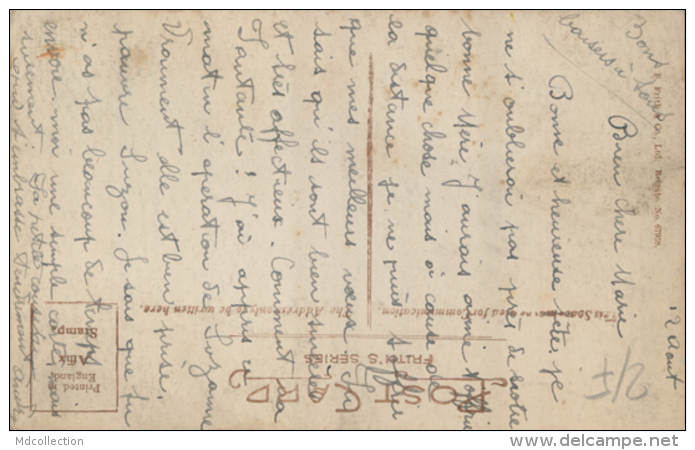 12 Aout
Bien chere Marie
Bonne et heureuse fête, je
ne t'oublierai pas près de notre
bonne Mère. J'aurais aimé t'offrir
quelque chose mais à cause de
la distance je ne puis t'offrir
que mes meilleurs vœux. Tu
sais qu'ils sont bien sincères
et très affectueux. Comment va
Tantante? J'ai appris ce
matin l'operation de Suzanne
Vraiment elle est bien prise.
pauvre Suzon. Je sais que tu
n'as pas beaucoup de temps
envoie-moi une simple carte
surement. Ta petite
qui t'embrasse tendrement
Bons
baisers à tous
2/5
POST CARD
FRITH'S SERIES
This Space may be used for Communication.
The Address only to be written here.
F. Frith & Co., Ltd. Reigate. No. 67908.
Affix
Stamp
Printed in
England
Mdcollection
www.delcampe.net